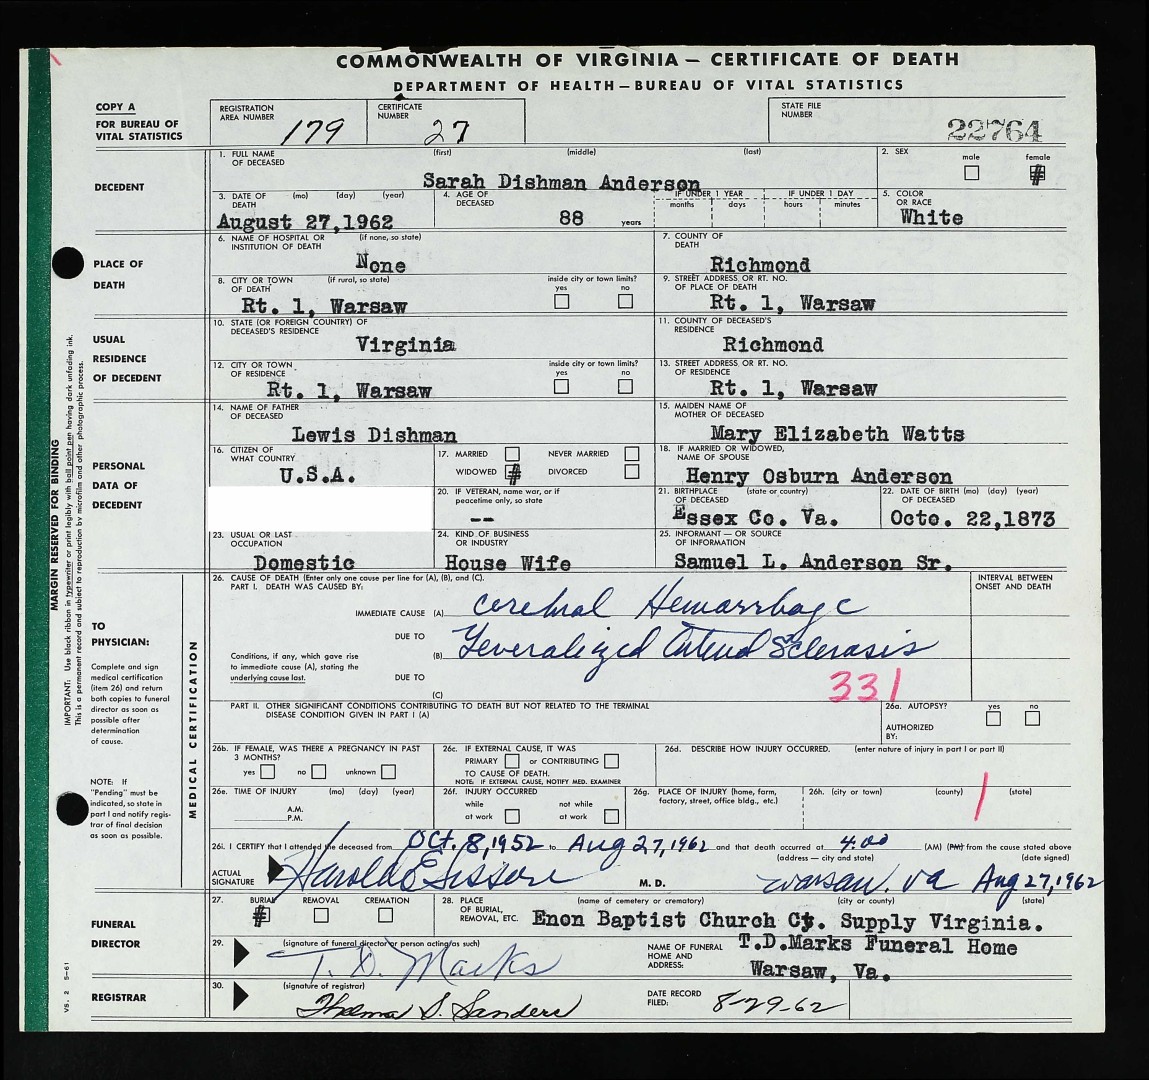 COMMONWEALTH OF VIRGINIA — CERTIFICATE OF DEATH
DEPARTMENT OF HEALTH — BUREAU OF VITAL STATISTICS
COPY A
FOR BUREAU OF
VITAL STATISTICS
REGISTRATION AREA NUMBER 179
CERTIFICATE NUMBER 27
STATE FILE NUMBER 22764
DECEDENT
1. FULL NAME OF DECEASED (first) (middle) (last)
Sarah Dishman Anderson
2. SEX male female #
3. DATE OF DEATH (mo) (day) (year)
August 27,1962
4. AGE OF DECEASED 88 years
IF UNDER 1 YEAR months days
IF UNDER 1 DAY hours minutes
5. COLOR OR RACE White
PLACE OF
DEATH
6. NAME OF HOSPITAL OR INSTITUTION OF DEATH (if none, so state)
None
7. COUNTY OF DEATH
Richmond
8. CITY OR TOWN OF DEATH (if rural, so state) inside city or town limits? yes no
Rt. 1, Warsaw
9. STREET ADDRESS OR RT. NO. OF PLACE OF DEATH
Rt. 1, Warsaw
USUAL
RESIDENCE
OF DECEDENT
10. STATE (OR FOREIGN COUNTRY) OF DECEASED'S RESIDENCE
Virginia
11. COUNTY OF DECEASED'S RESIDENCE
Richmond
12. CITY OR TOWN OF RESIDENCE inside city or town limits? yes no
Rt. 1, Warsaw
13. STREET ADDRESS OR RT. NO. OF RESIDENCE
Rt. 1, Warsaw
PERSONAL
DATA OF
DECEDENT
14. NAME OF FATHER OF DECEASED
Lewis Dishman
15. MAIDEN NAME OF MOTHER OF DECEASED
Mary Elizabeth Watts
16. CITIZEN OF WHAT COUNTRY
U.S.A.
17. MARRIED NEVER MARRIED
WIDOWED # DIVORCED
18. IF MARRIED OR WIDOWED, NAME OF SPOUSE
Henry Osburn Anderson
20. IF VETERAN, name war, or if peacetime only, so state
--
21. BIRTHPLACE (state or country) OF DECEASED
Essex Co. Va.
22. DATE OF BIRTH (mo) (day) (year) OF DECEASED
Octo. 22,1873
23. USUAL OR LAST OCCUPATION
Domestic
24. KIND OF BUSINESS OR INDUSTRY
House Wife
25. INFORMANT — OR SOURCE OF INFORMATION
Samuel L. Anderson Sr.
MARGIN RESERVED FOR BINDING
IMPORTANT: Use black ribbon in typewriter or print legibly with ball point pen having dark unfading ink.
This is a permanent record and subject to reproduction by microfilm and other photographic process.
VS. 2 5-61
TO
PHYSICIAN:
Complete and sign
medical certification
(item 26) and return
both copies to funeral
director as soon as
possible after
determination
of cause.
NOTE: If
"Pending" must be
indicated, so state in
part I and notify regis-
trar of final decision
as soon as possible.
MEDICAL CERTIFICATION
26. CAUSE OF DEATH (Enter only one cause per line for (A), (B), and (C).
PART I. DEATH WAS CAUSED BY:
INTERVAL BETWEEN ONSET AND DEATH
IMMEDIATE CAUSE (A) Cerebral Hemorrhage
DUE TO
(B) Generalized Arterio Sclerosis
Conditions, if any, which gave rise
to immediate cause (A), stating the
underlying cause last.
DUE TO
(C)
331
PART II. OTHER SIGNIFICANT CONDITIONS CONTRIBUTING TO DEATH BUT NOT RELATED TO THE TERMINAL
DISEASE CONDITION GIVEN IN PART I (A)
26a. AUTOPSY? yes no
AUTHORIZED BY:
26b. IF FEMALE, WAS THERE A PREGNANCY IN PAST
3 MONTHS?
yes no unknown
26c. IF EXTERNAL CAUSE, IT WAS
PRIMARY or CONTRIBUTING
TO CAUSE OF DEATH.
NOTE: IF EXTERNAL CAUSE, NOTIFY MED. EXAMINER
26d. DESCRIBE HOW INJURY OCCURRED. (enter nature of injury in part I or part II)
26e. TIME OF INJURY (mo) (day) (year)
A.M.
P.M.
26f. INJURY OCCURRED
while at work
not while at work
26g. PLACE OF INJURY (home, farm, factory, street, office bldg., etc.)
26h. (city or town) (county) (state)
26i. I CERTIFY that I attended the deceased from Oct. 8, 1952 to Aug 27, 1962 and that death occurred at 4:00 (AM) (PM) from the cause stated above
(address — city and state) (date signed)
ACTUAL SIGNATURE Harold E Sisson M. D. Warsaw, Va Aug 27, 1962
FUNERAL
DIRECTOR
27. BURIAL # REMOVAL CREMATION
28. PLACE OF BURIAL, REMOVAL, ETC. (name of cemetery or crematory) (city or county) (state)
Enon Baptist Church Cy. Supply Virginia.
29. (signature of funeral director or person acting as such)
T. D. Marks
NAME OF FUNERAL HOME AND ADDRESS: T.D.Marks Funeral Home
Warsaw, Va.
REGISTRAR
30. (signature of registrar)
Thelma S. Sanders
DATE RECORD FILED: 8-29-62